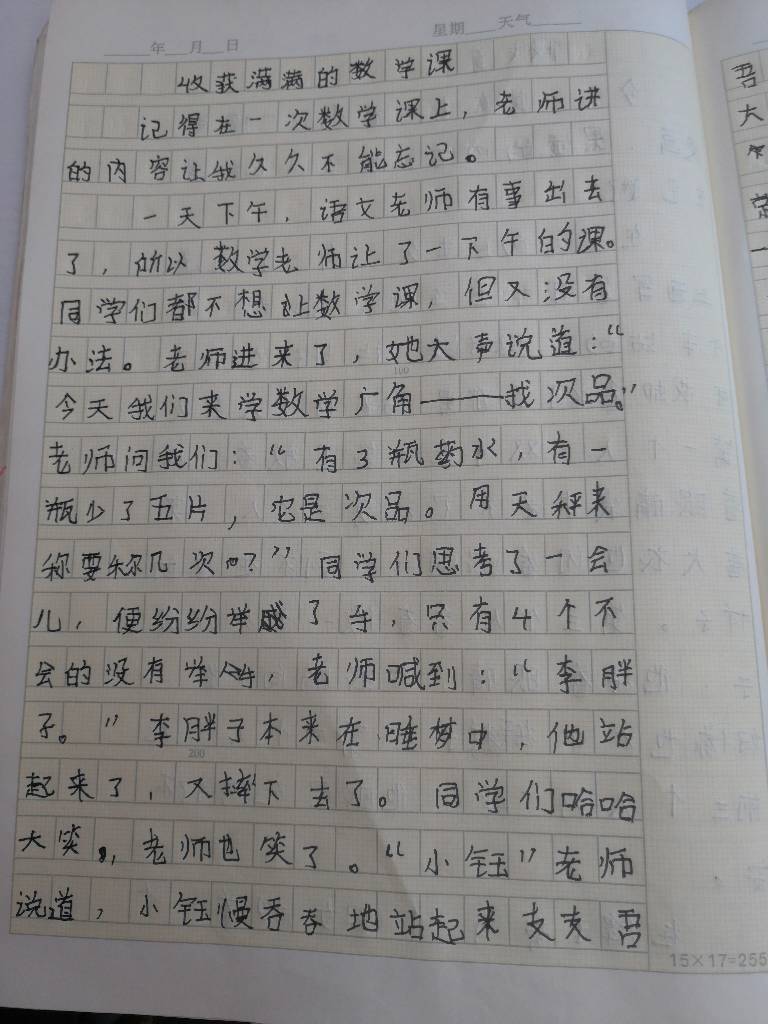 年 月 日
星期 天气
收获满满的数学课
记得在一次数学课上，老师讲
的内容让我久久不能忘记。
一天下午，语文老师有事出去
了，所以数学老师让了一下午的课。
同学们都不想让数学课，但又没有
办法。老师进来了，她大声说道：“
今天我们来学数学广角——找次品。”
老师问我们：“有3瓶药水，有一
瓶少了五片，它是次品。用天秤来
称要称几次吗？”同学们思考了一会
儿，便纷纷举了手，只有4个不
会的没有举手，老师喊到：“李胖
子。”李胖子本来在睡梦中，他站
200
起来了，又摔下去了。同学们哈哈
大笑，老师也笑了。“小钰”老师
说道，小钰慢吞吞地站起来支支吾
15×17=255
吾
大